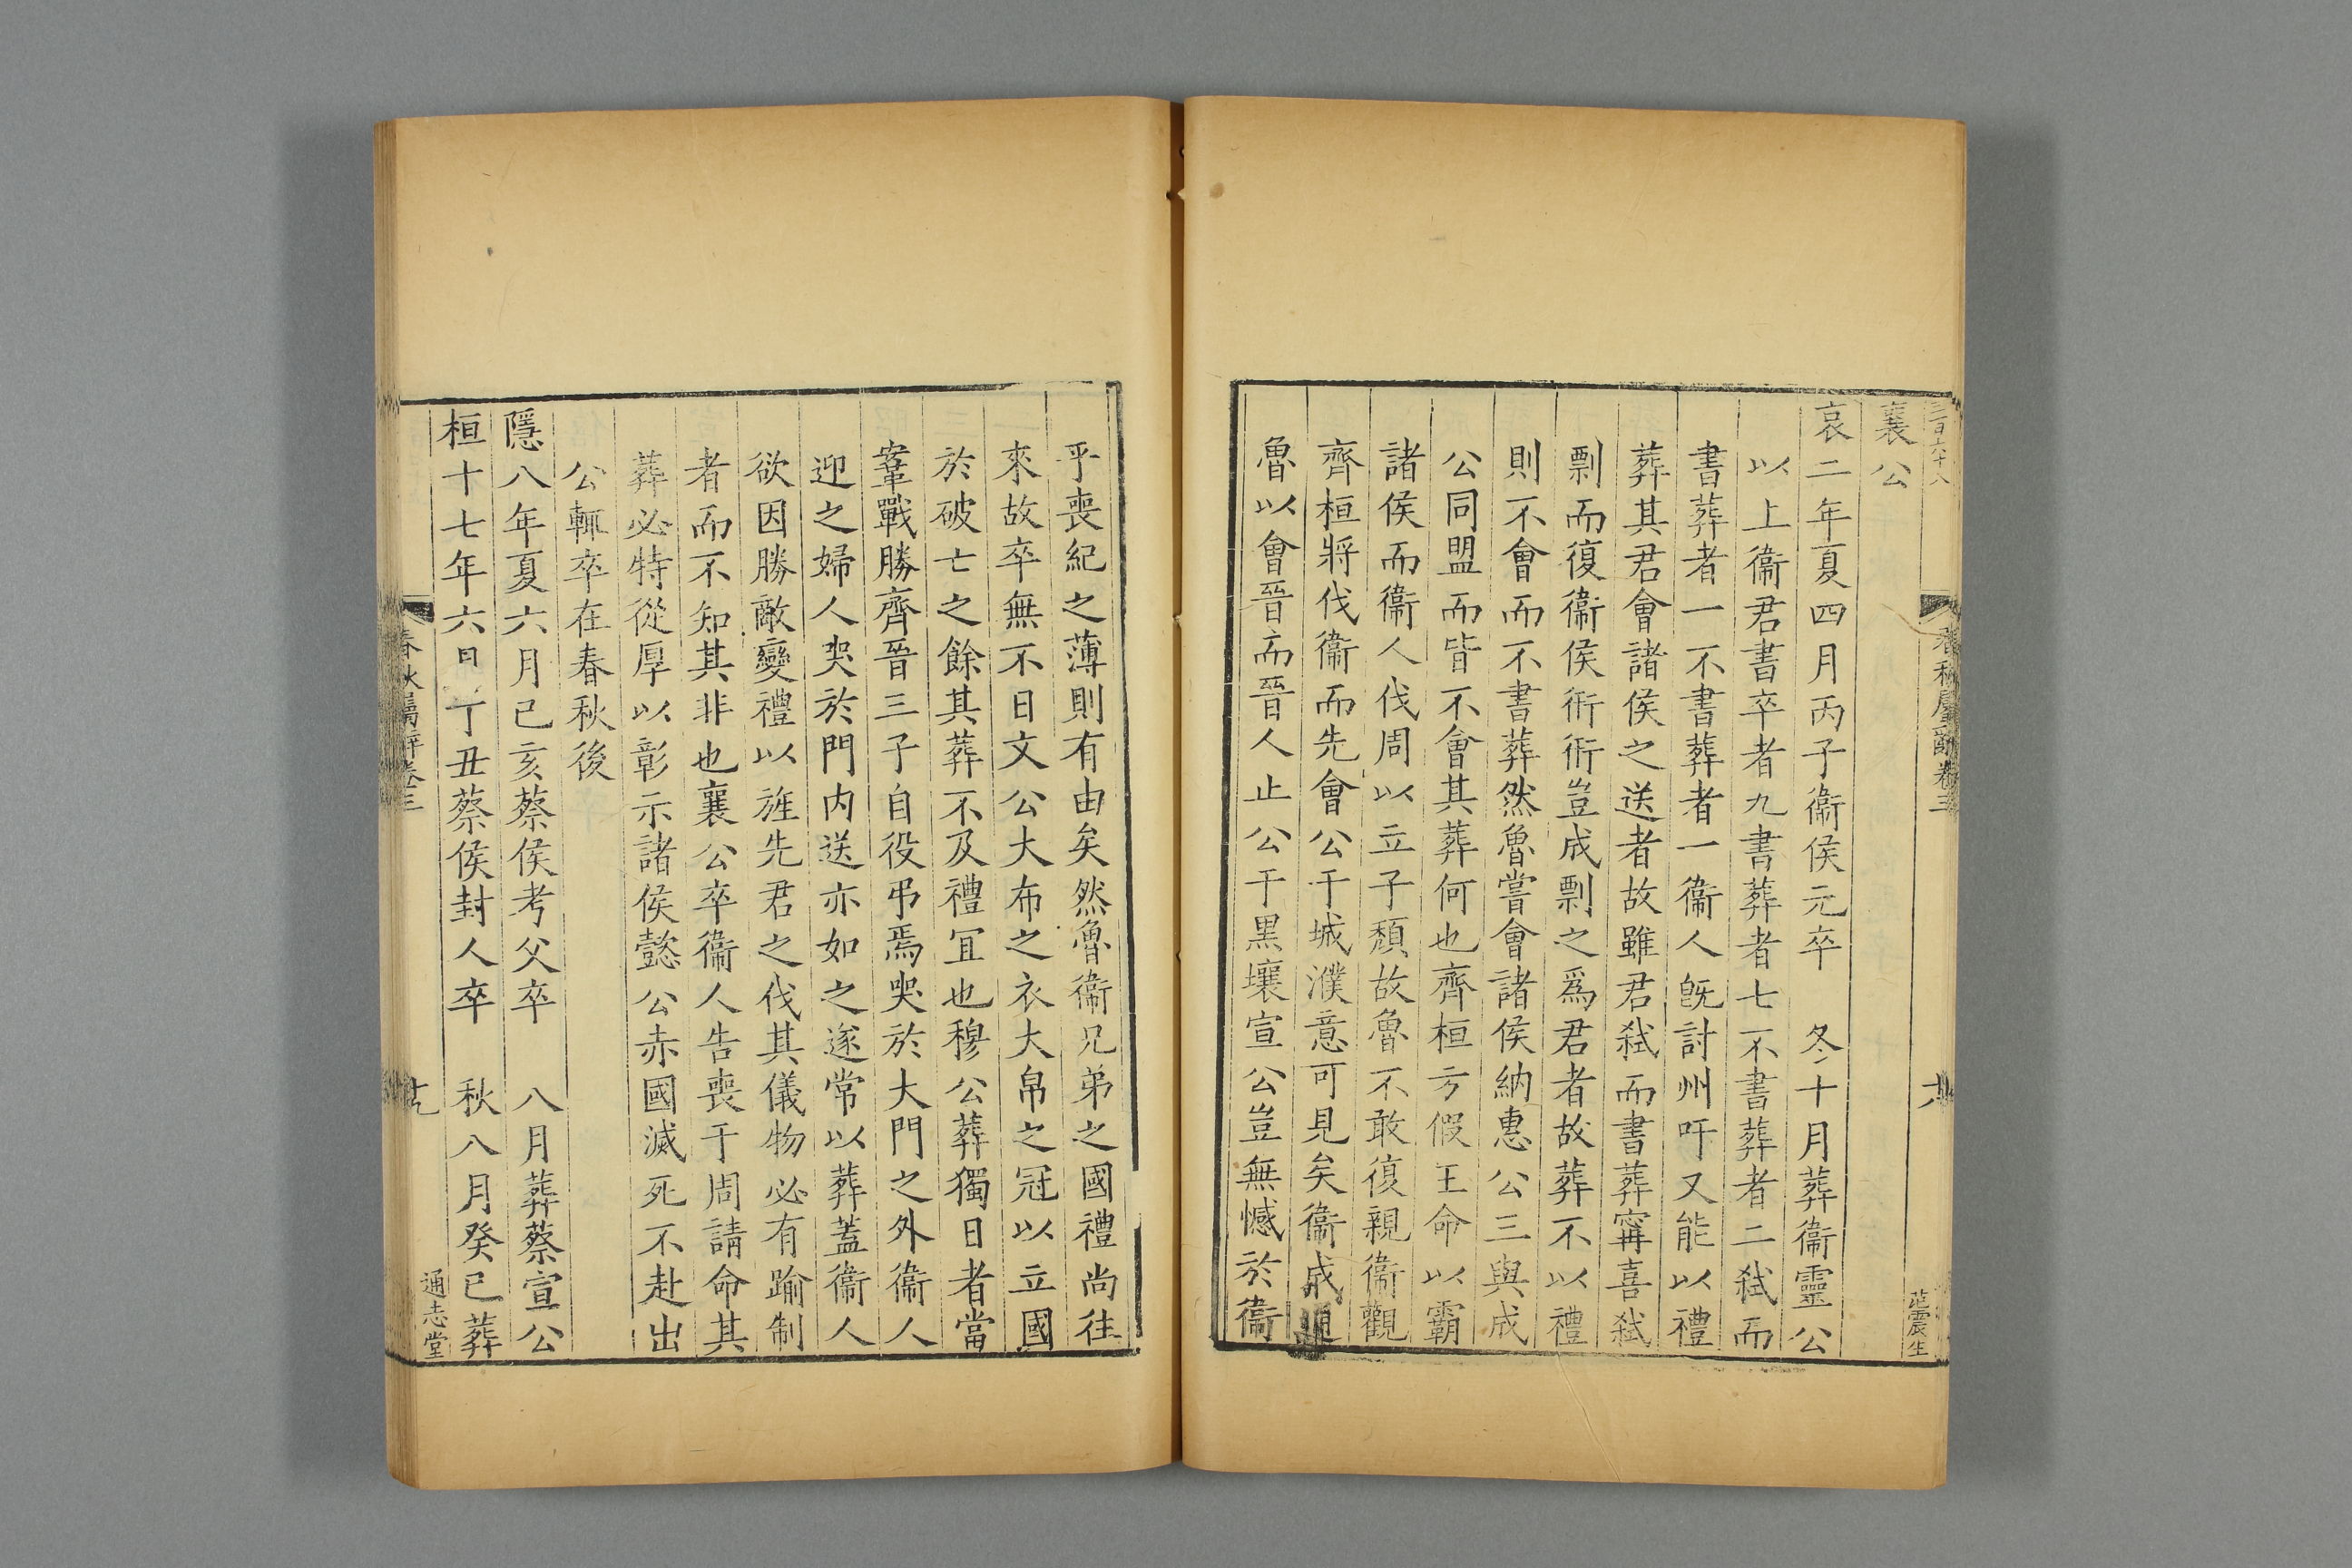 襄公
哀二年夏四月丙子衞侯元卒　冬十月葬衞靈公
以上衞君書卒者九書葬者七不書葬者二弑而
書葬者一不書葬者一衞人旣討州吁又能以禮
葬其君會諸侯之送者故雖君弑而書葬甯喜弑
剽而復衞侯衎衎豈成剽之爲君者故葬不以禮
則不會而不書葬然魯嘗會諸侯納惠公三與成
公同盟而皆不會其葬何也齊桓方假王命以霸
諸侯而衞人伐周以立子頽故魯不敢復親衞觀
齊桓將伐衞而先會公于城濮意可見矣衞成
魯以會晉而晉人止公于黑壤宣公豈無憾於衞
春秋屬辭卷三
乎喪紀之薄則有由矣然魯衞兄弟之國禮尚往
來故卒無不日文公大布之衣大帛之冠以立國
於破亡之餘其葬不及禮宜也穆公葬獨日者當
鞌戰勝齊晉三子自役弔焉哭於大門之外衞人
迎之婦人哭於門内送亦如之遂常以葬蓋衞人
欲因勝敵變禮以旌先君之伐其儀物必有踰制
者而不知其非也襄公卒衞人告喪于周請命其
葬必特從厚以彰示諸侯懿公赤國滅死不赴出
公輒卒在春秋後
隱八年夏六月己亥蔡侯考父卒　八月葬蔡宣公
桓十七年六月丁丑蔡侯封人卒　秋八月癸巳葬
春秋屬辭卷三
通志堂